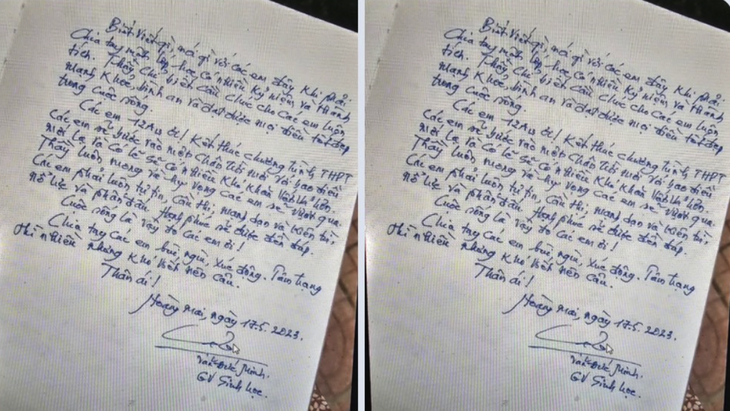 Biết viết gì, nói gì với các em đây khi phải
Chia tay một lớp học có nhiều kỷ niệm và thành
tích. Thầy chỉ biết cầu chúc cho các em luôn
mạnh khỏe, bình an và đạt được mọi điều tốt đẹp
trong cuộc sống.
Các em ơi! Kết thúc chương trình THPT
Các em sẽ bước vào một chân trời mới với bao điều
mới lạ và có lẽ sẽ có nhiều khó khăn lớn hơn.
Thầy luôn mong và hy vọng các em sẽ vượt qua.
Các em phải luôn tự tin, mạnh dạn và kiên trì,
nỗ lực và phấn đấu. Hạnh phúc sẽ được đền đáp.
Cuộc sống là vậy đó các em ơi!
Chia tay các em bùi ngùi, xúc động. Tâm trạng
thì nhiều nhưng khó viết nên câu.
Thân ái!
Hoàng Mai, ngày 17.5.2023.
Minh.
GV Sinh học.
Biết viết gì, nói gì với các em đây khi phải
Chia tay một lớp học có nhiều kỷ niệm và thành
tích. Thầy chỉ biết cầu chúc cho các em luôn
mạnh khỏe, bình an và đạt được mọi điều tốt đẹp
trong cuộc sống.
Các em ơi! Kết thúc chương trình THPT
Các em sẽ bước vào một chân trời mới với bao điều
mới lạ và có lẽ sẽ có nhiều khó khăn lớn hơn.
Thầy luôn mong và hy vọng các em sẽ vượt qua.
Các em phải luôn tự tin, mạnh dạn và kiên trì,
nỗ lực và phấn đấu. Hạnh phúc sẽ được đền đáp.
Cuộc sống là vậy đó các em ơi!
Chia tay các em bùi ngùi, xúc động. Tâm trạng
thì nhiều nhưng khó viết nên câu.
Thân ái!
Hoàng Mai, ngày 17.5.2023.
Minh.
GV Sinh học.